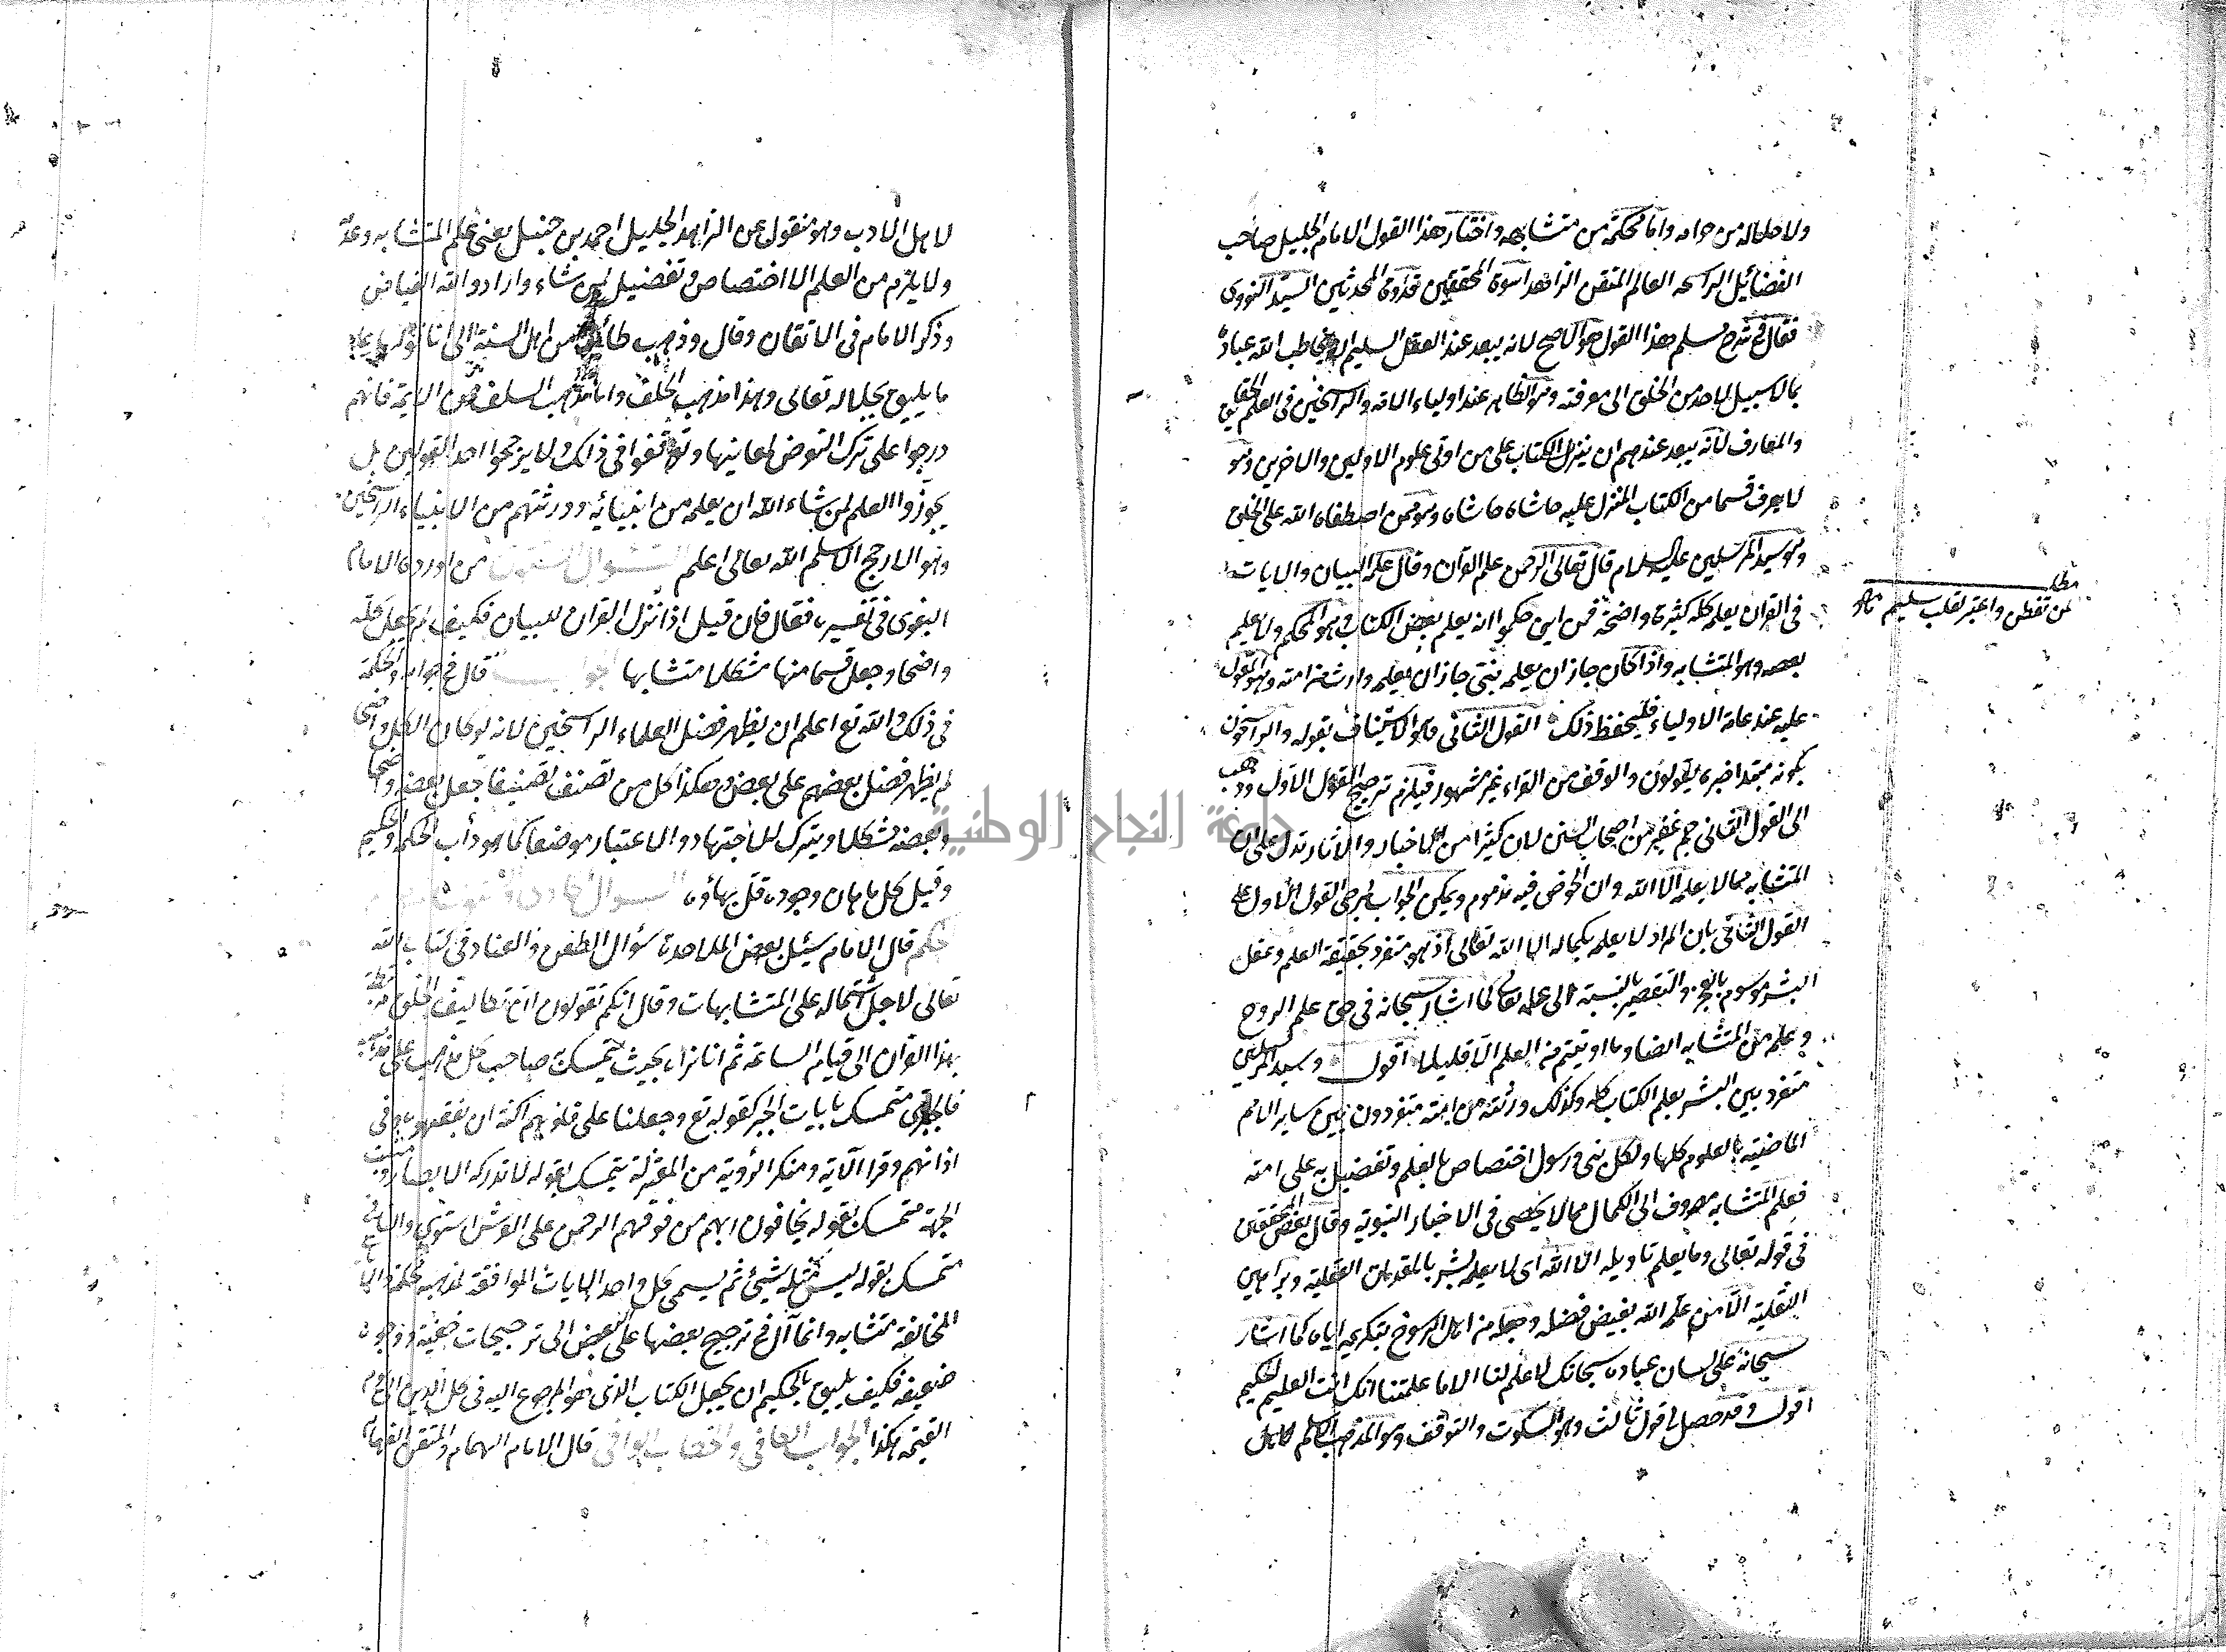 ولا حلاله من حرامه واما محكمه من متشابهه واختار هذا القول الامام الجليل صاحب
الفضائل الراسخه العالم المتقن الزاهد اسوة المحققين قدوة المحدثين السيد النووى
فقال فى شرح مسلم هذا القول هو الاصح لانه يبعد عند العقل السليم ان يخاطب الله عباده
بما لا سبيل لاحد من الخلق الى معرفته وهو الظاهر عند اولياء الامة والراسخين فى العلم الحقايق
والمعارف لانه يبعد عندهم ان ينزل الكتاب على من اوتى علوم الاولين والاخرين وهو
لا يعرف قسما من الكتاب المنزل عليه حاشاه حاشاه وهو ممن اصطفاه الله على الخلق
وهو سيد المرسلين عليه السلام قال تعالى الرحمن علم القرآن وقال علمه البيان والايات
فى القران يعلمه كله كثيرة واضحة فمن اين حكموا انه يعلم بعض الكتاب وهو المحكم ولا يعلم
بعضه وهو المتشابه واذا كان جاز ان يعلمه نبى جاز ان يعلمه وارث من امته وهو المعول
عليه عند عامة الاولياء فليحفظ ذلك القول الثانى هو الاستيناف بقوله والراسخون
بكونه مبتدا خبره يقولون والوقف من القراء غير مشهور فيلزم ترجيح القول الاول وذهب
الى القول الثانى جم غفير من اصحاب السنن لان كثيرا من الاخبار والاثار تدل على ان
المتشابه مما لا يعلمه الا الله وان الخوض فيه مذموم ويمكن الجواب لمرجحى القول الاول على
القول الثانى بان المراد لا يعلمه بكماله الا الله تعالى اذ هو متفرد بحقيقة العلم وعقل
البشر موسوم بالعجز والتقصير بالنسبة الى علمه تعالى كما اشار سبحانه فى حق علم الروح
وعلم من المتشابه ايضا وما اوتيتم من العلم الا قليلا اقول وسيد المرسلين
متفرد بين البشر بعلم الكتاب كله وكذلك ورثته من امته متفردون بين ساير الامم
الماضية بالعلوم كلها ولكل نبى ورسول اختصاص بالعلم وتفضيل به على امته
فعلم المتشابه مصروف الى الكمال مما لا يحصى فى الاخبار النبوية وقال بعض المحققين
فى قوله تعالى وما يعلم تاويله الا الله اى لا يعلمه بشر بالمقدمات العقلية وبراهين
النقلية الا من علمه الله بفيض فضله وجعله من اهل الرسوخ بتكريمه اياه كما اشار
سبحانه على لسان عباده سبحانك لا علم لنا الا ما علمتنا انك انت العليم الحكيم
اقول وقد حصل قول ثالث وهو السكوت والتوقف وهو المذهب الاسلم
مطلب
لمن تفطن واعتبر بقلب سليم
لاهل الادب وهو منقول عن الزاهد الجليل احمد بن حنبل يعنى علم المتشابه وعدّ
ولا يلزم من العلم الا اختصاص وتفضيل لمن شاء واراد والله الفياض
وذكر الامام فى الاتقان وقال وذهب طائفة من اهل السنة الى انا نؤولها على
ما يليق بجلاله تعالى وهذا مذهب الخلف واما مذهب السلف من الايمة فانهم
درجوا على ترك التعرض لمعانيها وتوقفوا فى ذلك ولا يرجحوا احد القولين بل
يجوزوا العلم لمن شاء الله ان يعلمه من انبيائه وورثتهم من الانبياء الراسخين
وهو الارجح الاسلم الله تعالى اعلم السؤال الستون من اورده الامام
البغوى فى تفسيره فقال فان قيل اذا نزل القران للبيان فكيف لم يجعل كله
واضحا وجعل قسما منها مشكلا متشابها الجواب قال فى جوابه والحكمة
فى ذلك والله تع اعلم ان يظهر فضل العلماء الراسخين لانه لو كان الكل واضحا
لم يظهر فضل بعضهم على بعض وهكذا كل من تصنف تصنيفا جعل بعضه واضحا
وبعضه مشكلا ويترك للاجتهاد والاعتبار موضعا كما هو دأب الحكمة والحكيم
وقيل كل ما هان وجوده قل بهاؤه السؤال الحادى والستون
قال الامام سئل بعض الملاحدة سؤال الطعن والعناد فى كتاب الله
تعالى لاجل اشتماله على المتشابهات وقال انكم تقولون ان تكاليف الخلق مرتبطة
بهذا القرآن الى قيام الساعة ثم انا نراه بحيث يتمسك صاحب كل مذهب على مذهبه
فالجبرى متمسك بايات الجبر كقوله تع وجعلنا على قلوبهم اكنة ان يفقهوه وفى
اذانهم وقرا الآية ومنكر الرؤية من المعتزلة يتمسك بقوله لا تدركه الابصار ومثبت
الجهة متمسك بقوله يخافون ربهم من فوقهم الرحمن على العرش استوى والنافى
متمسك بقوله ليس كمثله شيئ ثم يسمى كل واحد الايات الموافقة لمذهبه محكمة والايات
المخالفة متشابه وانما آل فى ترجيح بعضها على بعض الى ترجيحات خفية ووجوه
ضعيفة فكيف يليق بالحكيم ان يجعل الكتاب الذى هو المرجوع اليه فى كل الدين الى يوم
القيمة هكذا الجواب الشافى والخطاب الوافى قال الامام الهمام والمتقن الفهام
جامعة النجاح الوطنية